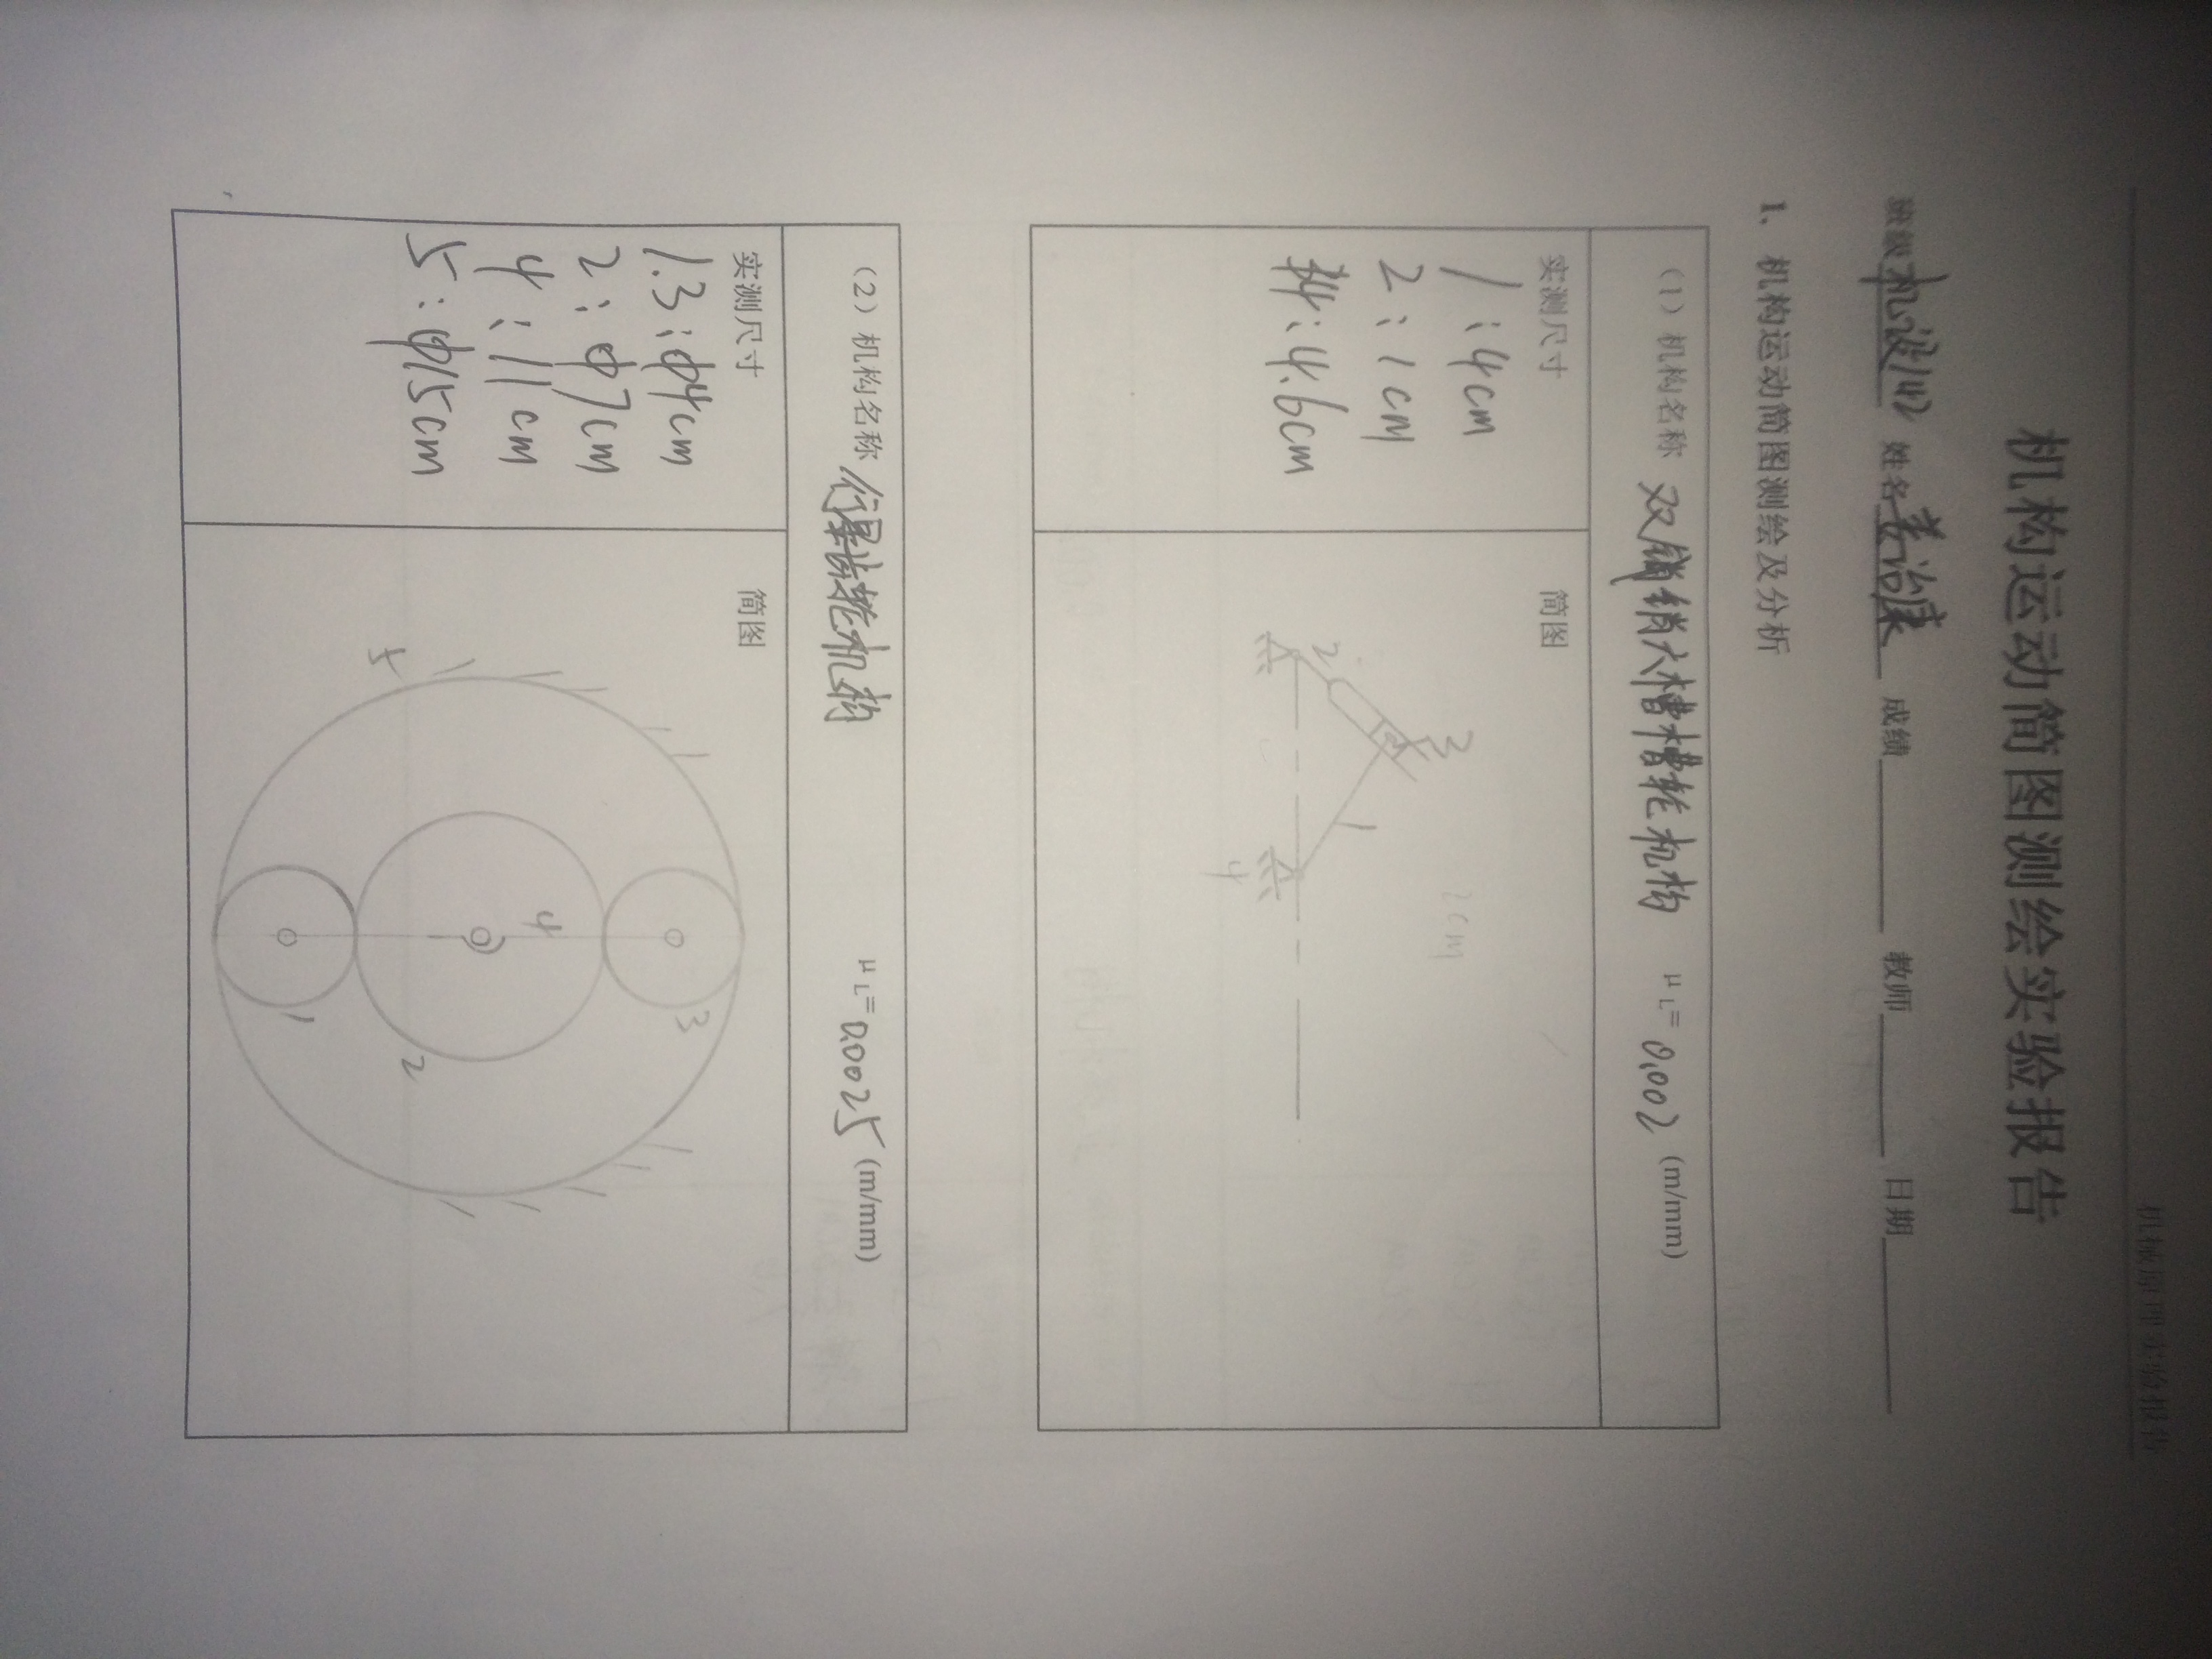 机械原理实验报告
机构运动简图测绘实验报告
班级 机设142 姓名 成绩 教师 日期
1、机构运动简图测绘及分析
(1) 机构名称 双销六槽槽轮机构 μL= 0.002 (m/mm)
实测尺寸
1:4cm
2:1cm
4:4.6cm
简图
2
3
1
4
2cm
(2) 机构名称 行星齿轮机构 μL= 0.0025 (m/mm)
实测尺寸
1.3:φ4cm
2:φ7cm
4:11cm
5:φ15cm
简图
5
4
3
1
2